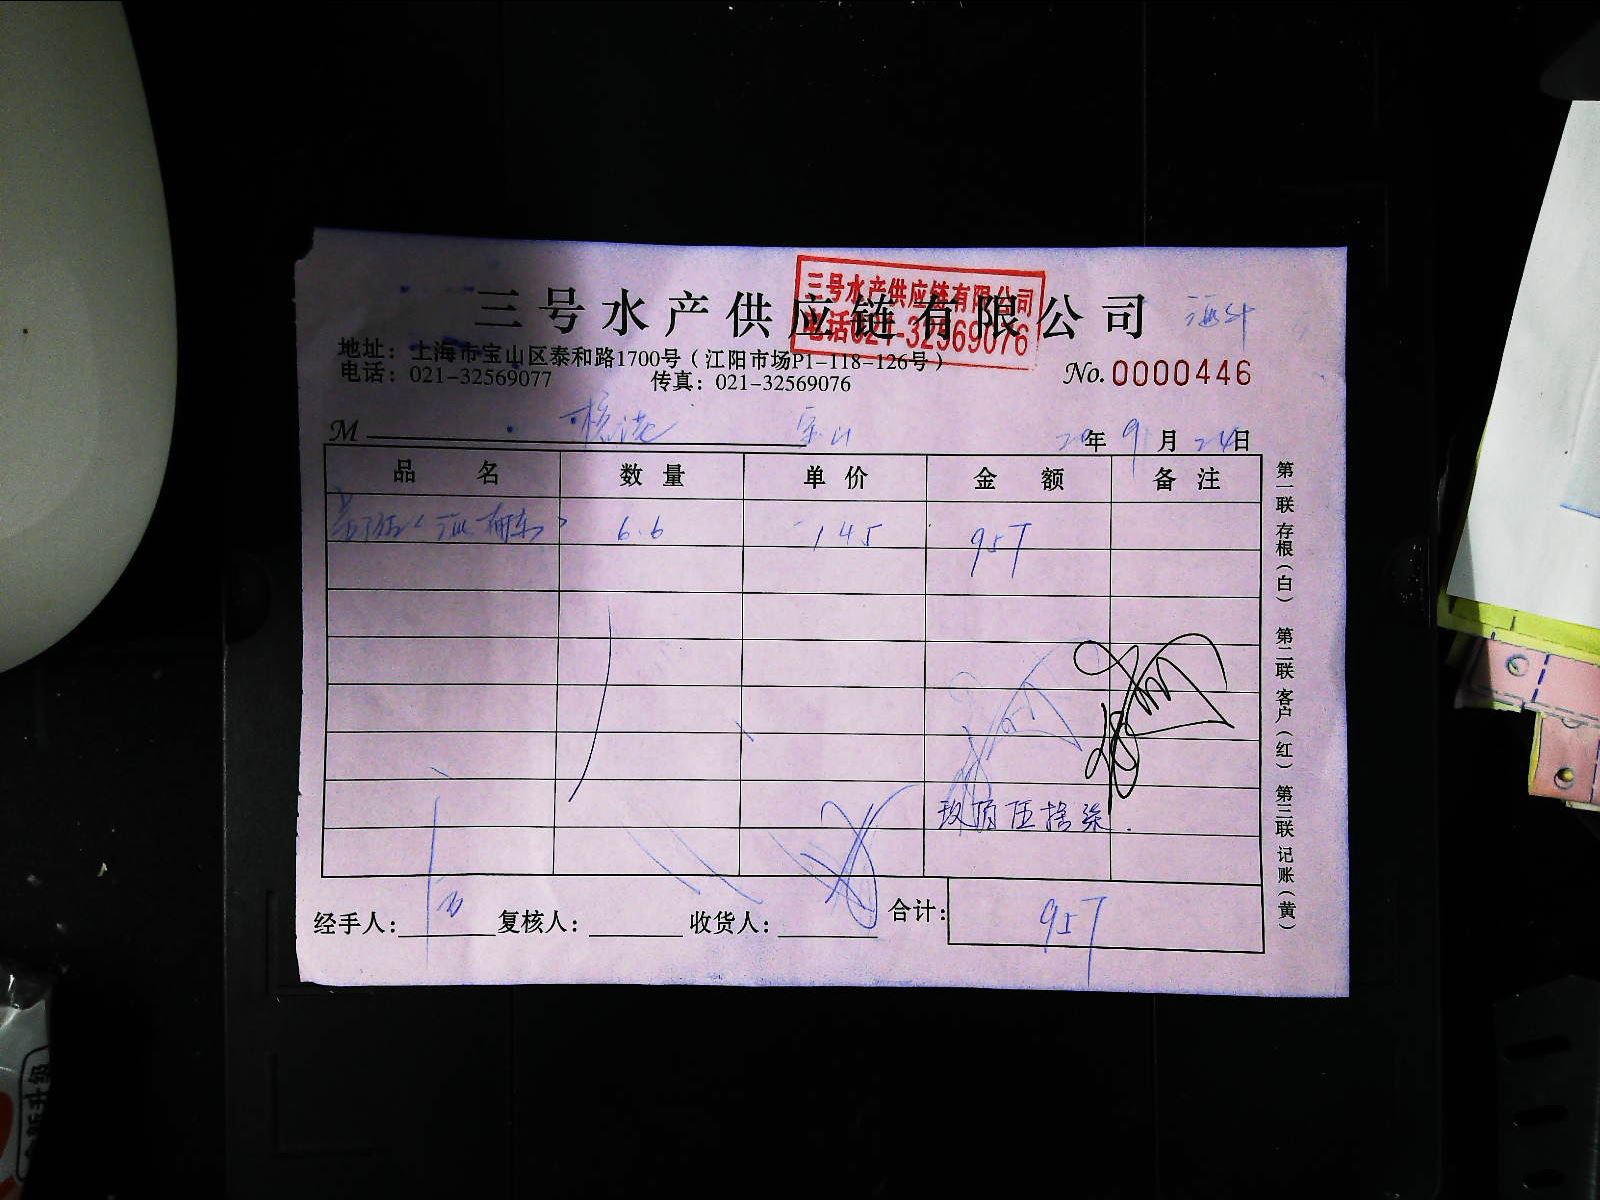 三号水产供应链有限公司
三号水产供应链有限公司
电话021-32569076
地址：上海市宝山区泰和路1700号（江阳市场P1-118-126号）
电话：021-32569077 传真：021-32569076
No.0000446
M 宝山 20年9月24日
品名 数量 单价 金额 备注
6.6 145 957
玖百伍拾柒
经手人： 复核人： 收货人： 合计： 957
第一联 存根（白） 第二联 客户（红） 第三联 记账（黄）